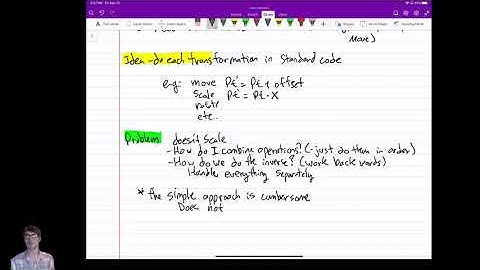 Move)
Idea - do each transformation in standard code
e.g. move Pt' = Pt + offset
Scale Pt' = Pt · X
rotate
etc..
Problem doesn't scale
- How do I combine operations? (- just do them in order)
- How do we do the inverse? (work backwards)
Handle everything separately
* the simple approach is cumbersome
Does not